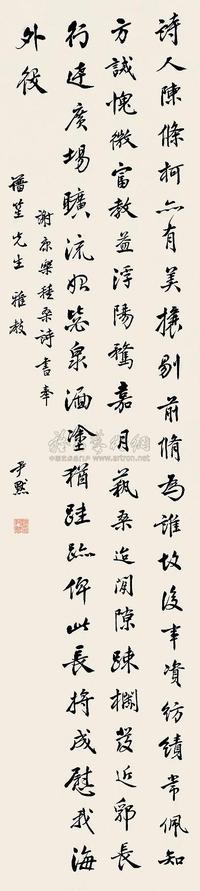 詩人陳條柯亦有美攘剔前脩為誰故後事資紡績常佩知
方誡愧微富教益浮陽騖嘉月蓺桑迨閒隙疎欄發近郛長
行達廣場曠流始毖泉湎塗猶跬跡俾此長將成慰我海
外役
謝康樂種桑詩書奉
先生雅教
尹默
www.artron.net